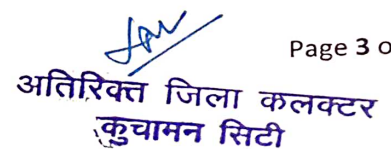 Page 3 o
अतिरिक्त जिला कलक्टर
कुचामन सिटी